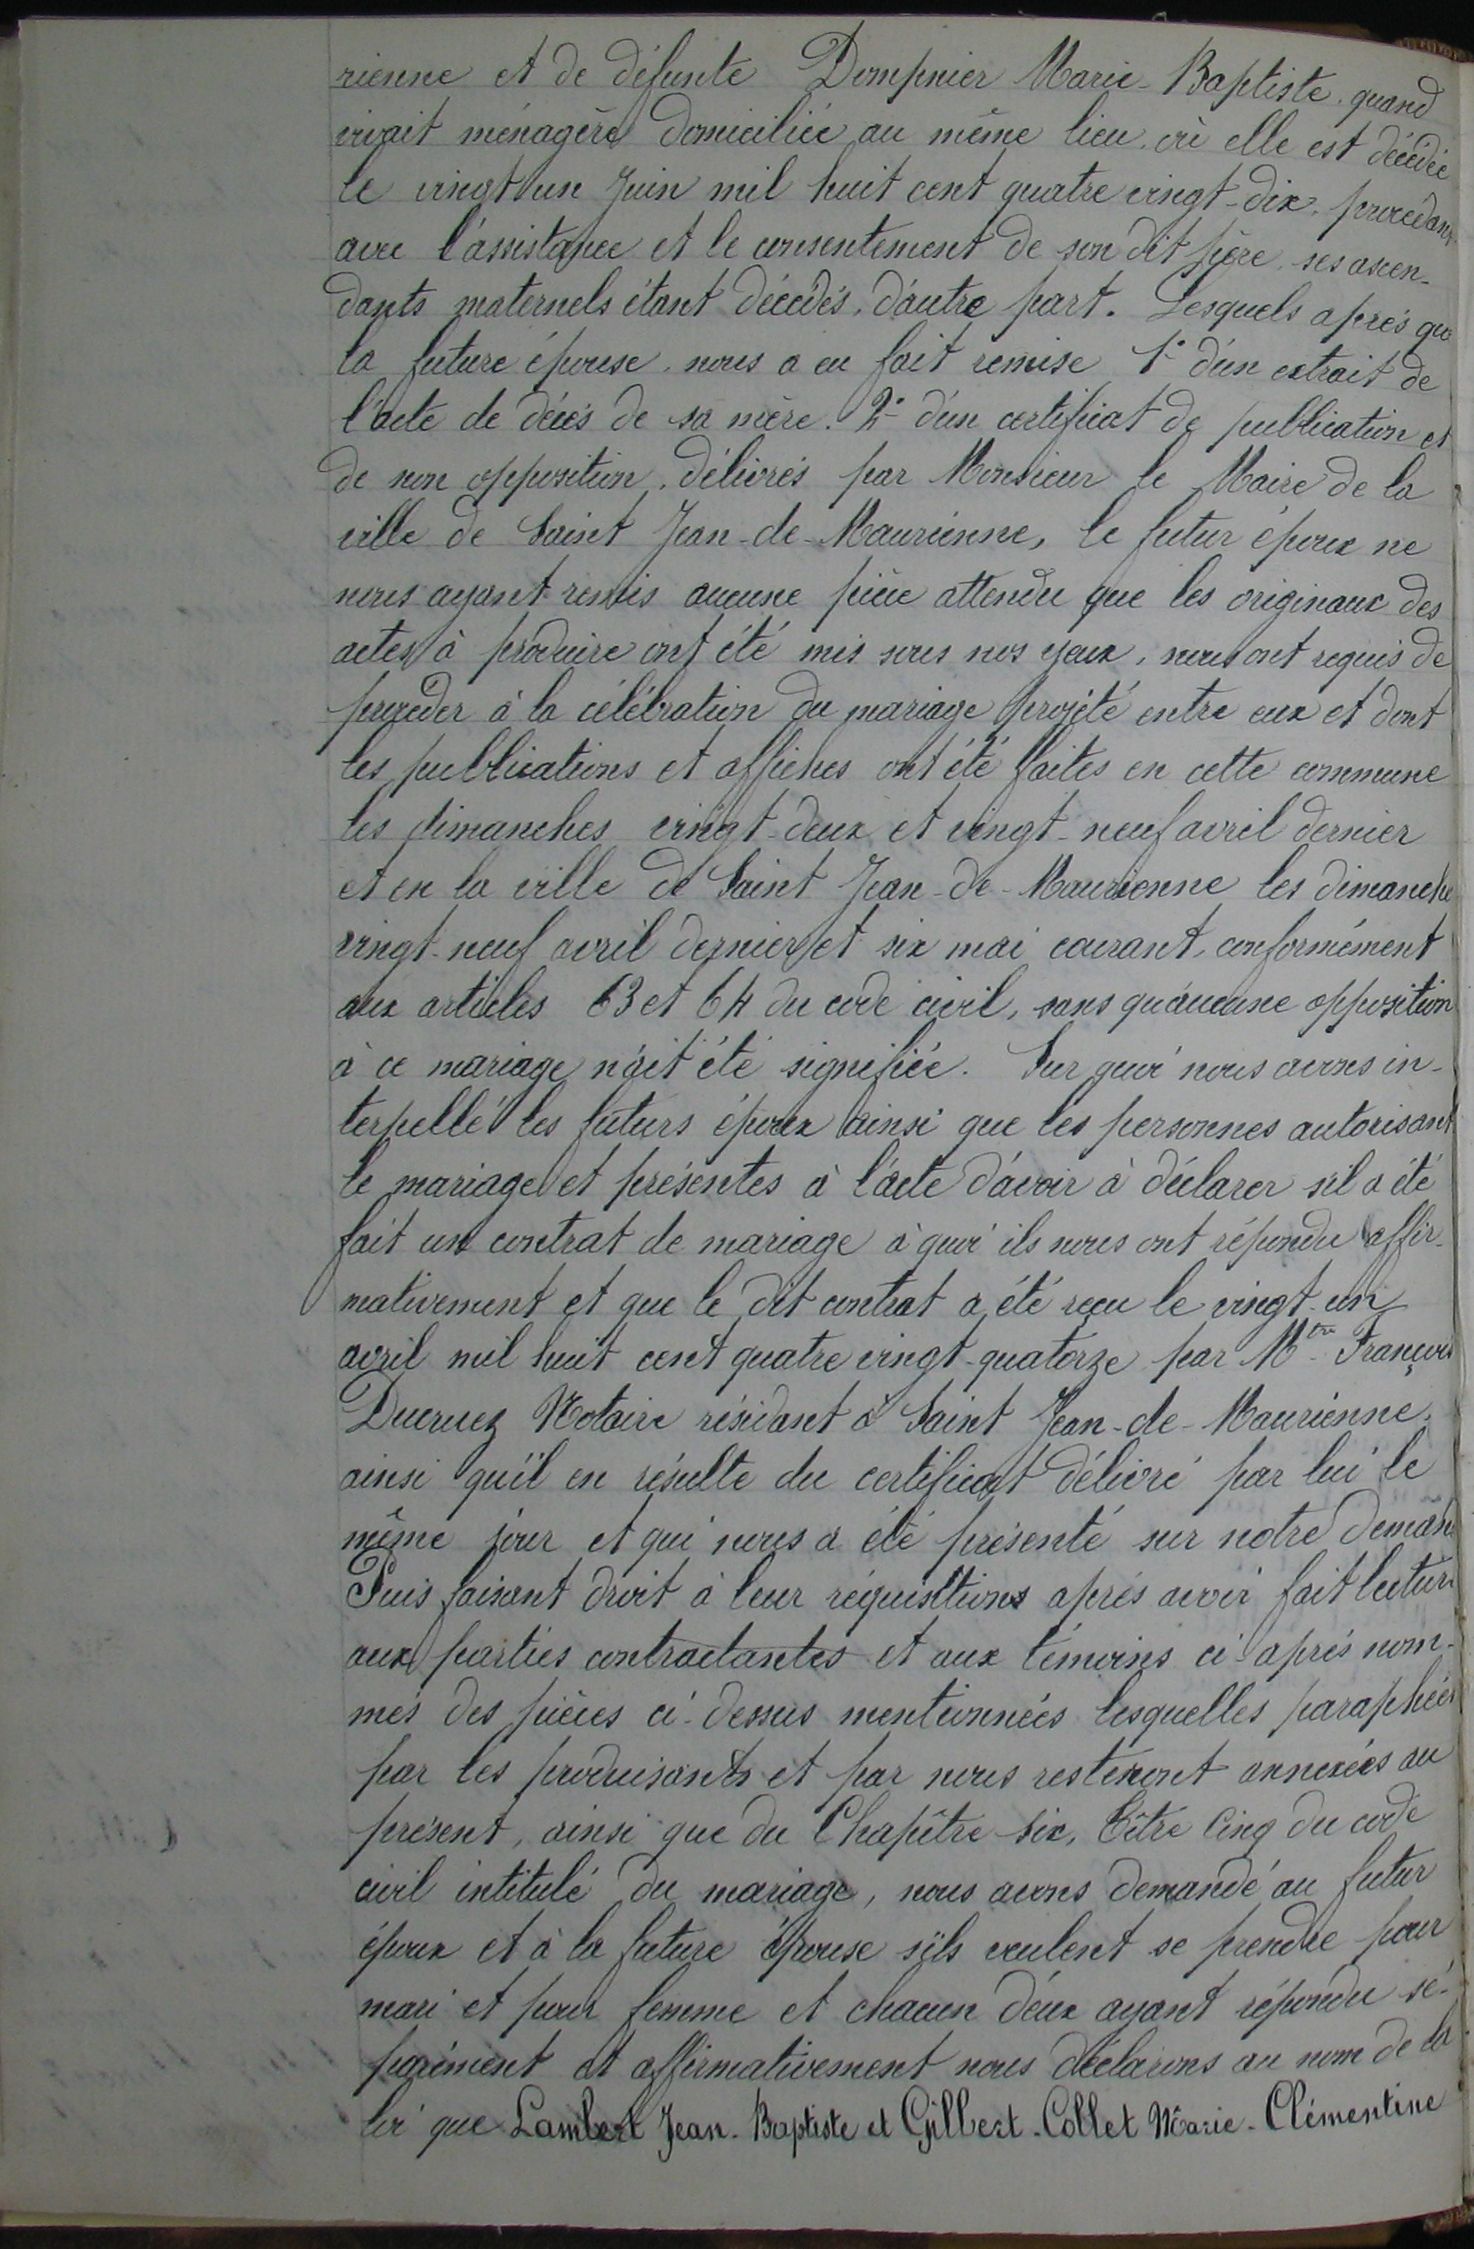 rienne et de défunte Dompnier Marie-Baptiste, quand
vivait ménagère domiciliée au même lieu où elle est décédée
le vingt un Juin mil huit cent quatre vingt-dix, procédant
avec l'assistance et le consentement de son dit père, ses ascen-
dants maternels étant décédés, d'autre part. Lesquels après que
la future épouse, nous a eu fait remise 1° d'un extrait de
l'acte de décès de sa mère. 2° d'un certificat de publication et
de non opposition, délivrés par Monsieur le Maire de la
ville de Saint Jean-de-Maurienne, le futur époux ne
nous ayant remis aucune pièce attendu que les originaux des
actes à produire ont été mis sous nos yeux, nous ont requis de
procéder à la célébration du mariage projété entre eux et dont
les publications et affiches ont été faites en cette commune
les dimanches vingt-deux et vingt-neuf avril dernier
et en la ville de Saint Jean-de-Maurienne les dimanche
vingt-neuf avril dernier et six mai courant, conformément
aux articles 63 et 64 du code civil, sans qu'aucune opposition
à ce mariage n'ait été signifiée. Sur quoi nous avons in-
terpellé les futurs époux ainsi que les personnes autorisant
le mariage et présentes à l'acte d'avoir à déclarer s'il a été
fait un contrat de mariage à quoi ils nous ont répondu affir-
mativement et que le dit contrat a été reçu le vingt-un
avril mil huit cent quatre vingt-quatorze par Mtre François
Ducruez Notaire résidant à Saint Jean-de-Maurienne,
ainsi qu'il en résulte du certificat délivré par lui le
même jour et qui nous a été présenté sur notre deman
Puis faisant droit à leur réquisitions après avoir fait lecture
aux parties contractantes et aux témoins ci-après nom-
més des pièces ci-dessus mentionnées lesquelles paraphées
par les produisants et par nous resteront annexées au
présent, ainsi que du Chapître six, Titre Cinq du code
civil intitulé du mariage, nous avons demandé au futur
époux et à la future épouse s'ils veulent se prendre pour
mari et pour femme et chacun d'eux ayant répondu sé-
parément et affirmativement nous déclarons au nom de la
loi que Lambert Jean-Baptiste et Gilbert-Collet Marie-Clémentine